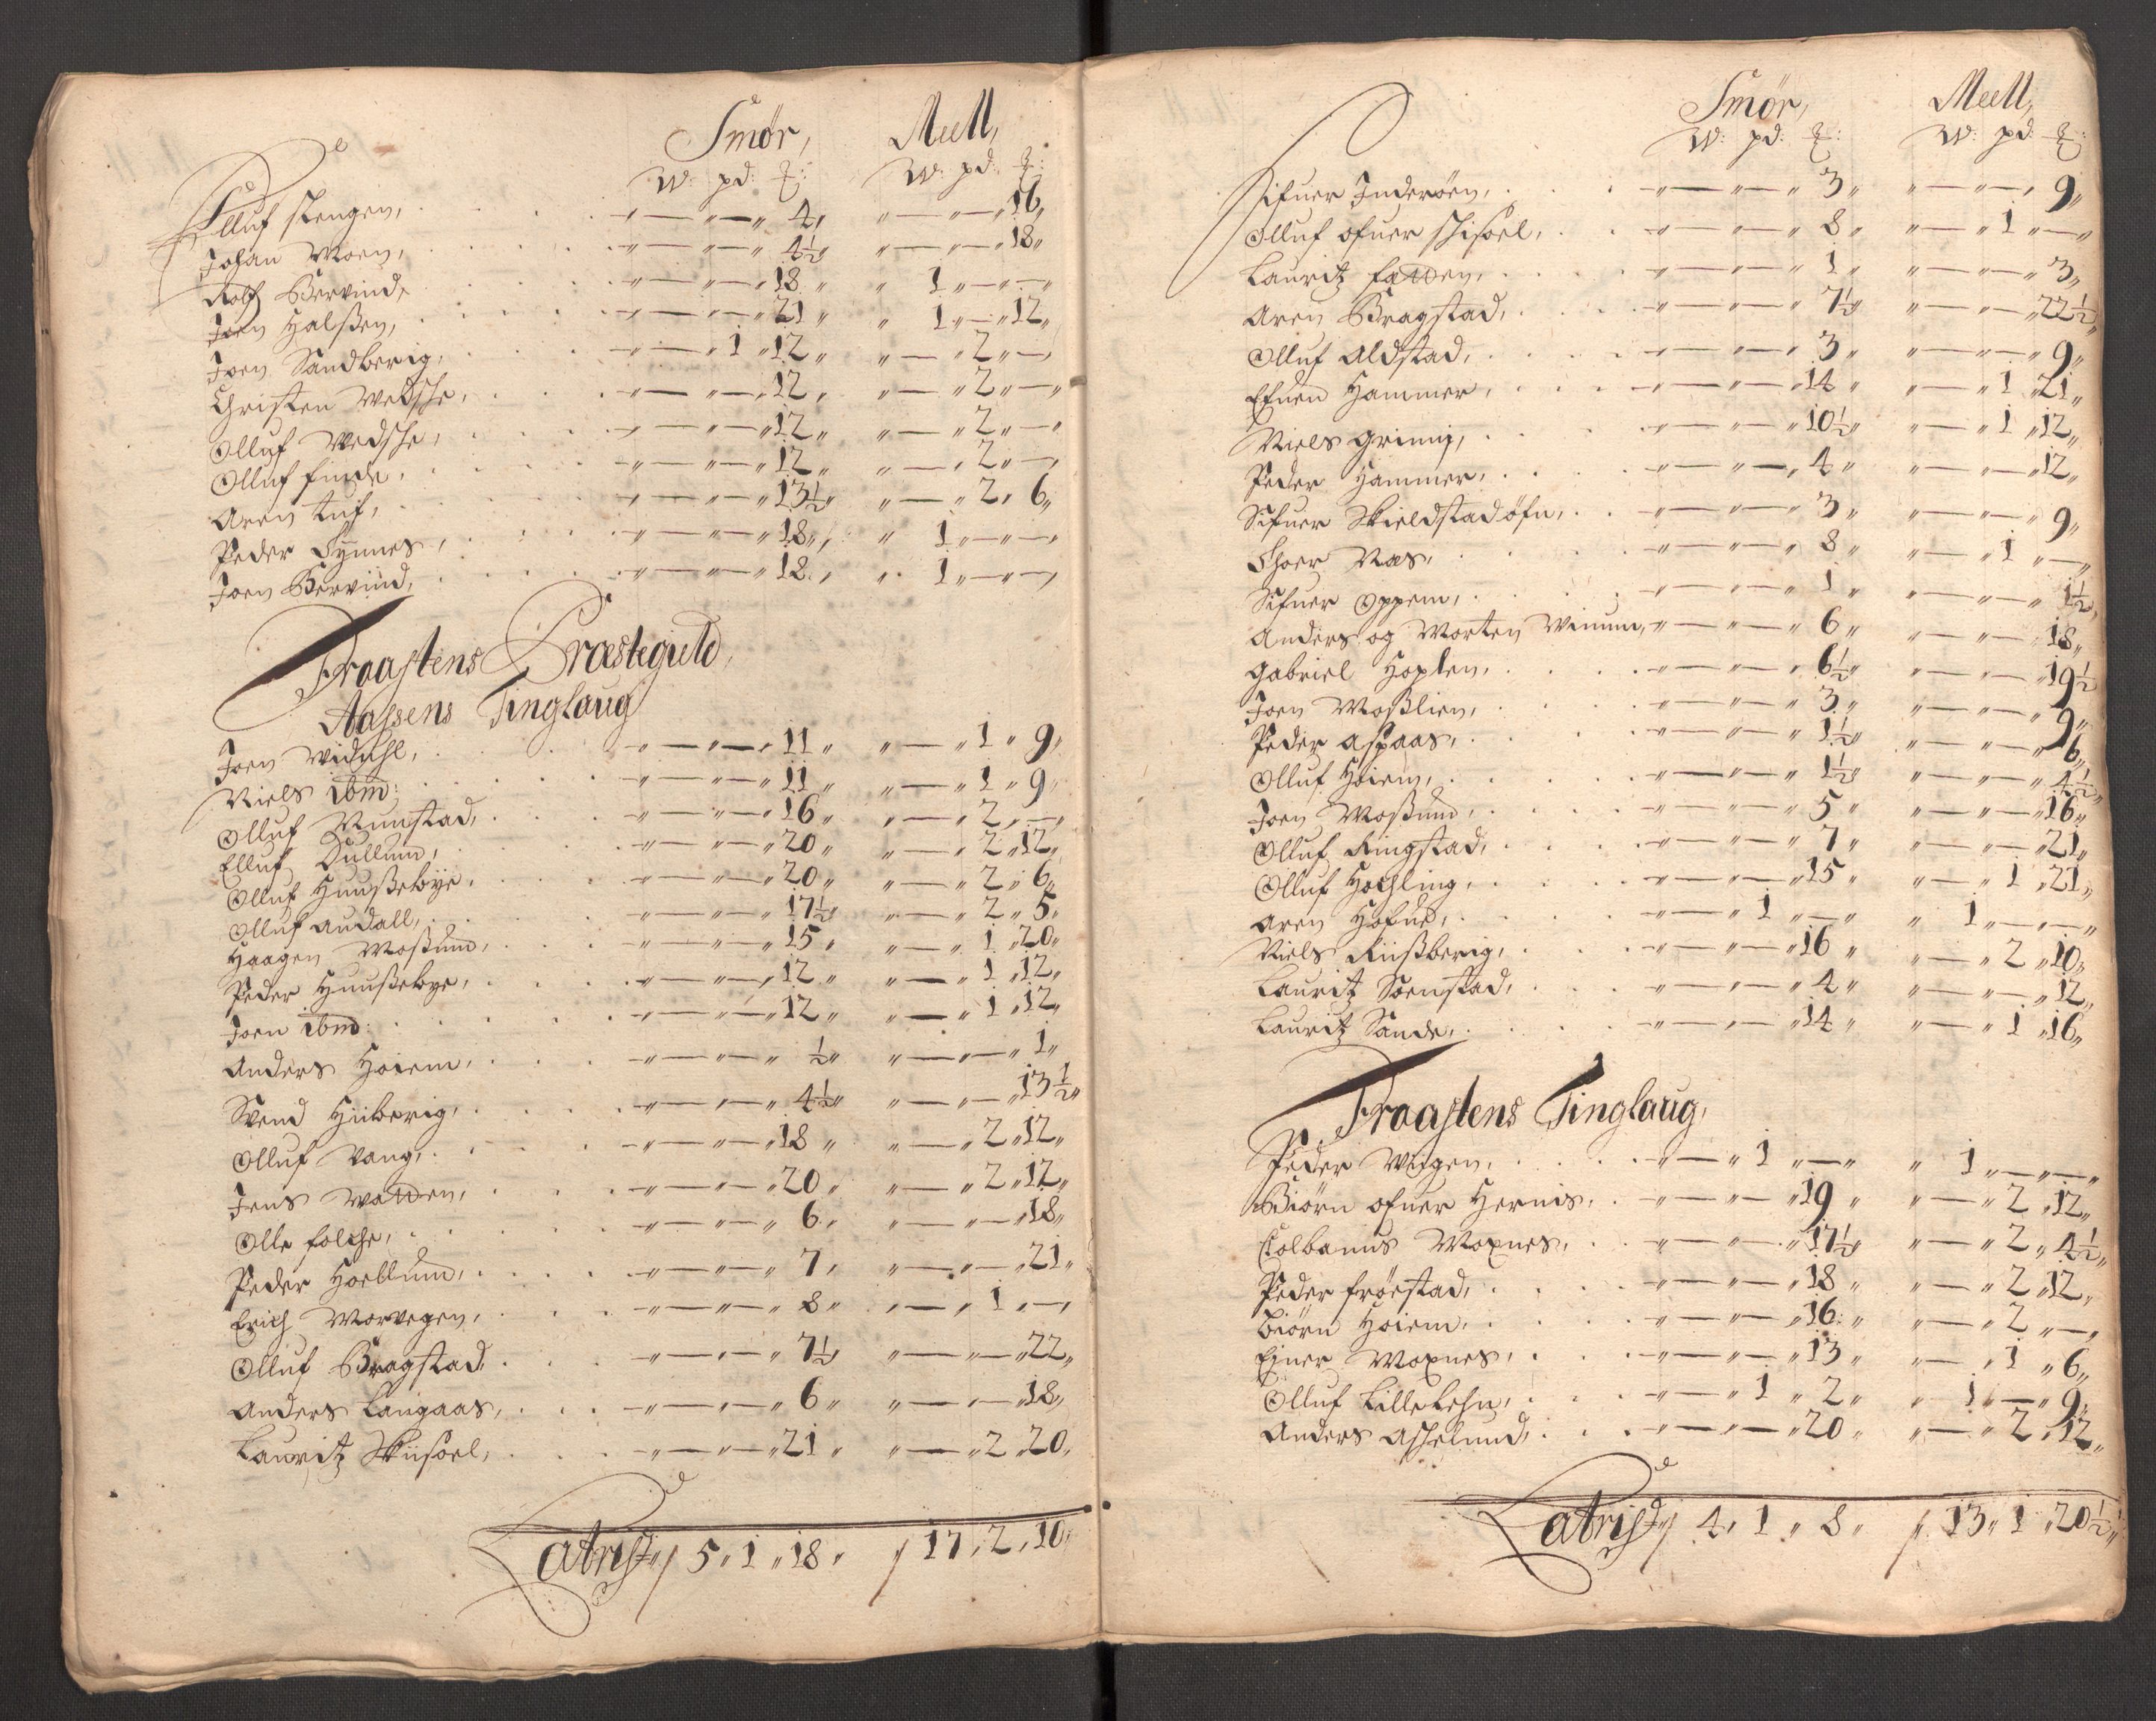 Smør, Meell,
W: pd: ℔: W: pd: ℔:
Elluf Stengen, „ — „ — „ 4 „ „ — „ — „ 16 „
Johan Moen, „ — „ — „ 4½ „ „ — „ — „ 18 „
Rolf Bervind, „ — „ — „ 18 „ „ 1 „ — „ —
Joen Halßen, „ — „ — „ 21 „ „ 1 „ — „ 12 „
Joen Sandberig, „ — „ 1 „ 12 „ „ — „ 2 „ —
Christen Wedsche, „ — „ — „ 12 „ „ — „ 2 „ —
Olluf Wedsche, „ — „ — „ 12 „ „ — „ 2 „ —
Olluf Finde, „ — „ — „ 12 „ „ — „ 2 „ —
Aren Tuf, „ — „ — „ 13½ „ „ — „ 2 „ 6 „
Peder Fynnes, „ — „ — „ 18 „ „ 1 „ — „ —
Joen Bervind, „ — „ — „ 18 „ „ 1 „ — „ —
Fraastens Præstegield,
Aassens Tinglaug
Joen Widuhl, „ — „ — „ 11 „ „ — „ 1 „ 9 „
Niels ibm: „ — „ — „ 11 „ „ — „ 1 „ 9 „
Olluf Runstad, „ — „ — „ 16 „ „ — „ 2 „ —
Elluf Dullum, „ — „ — „ 20 „ „ — „ 2 „ 12 „
Olluf Huußebye, „ — „ — „ 20 „ „ — „ 2 „ 6 „
Olluf Audall, „ — „ — „ 17½ „ „ — „ 2 „ 5 „
Haagen Moßum, „ — „ — „ 15 „ „ — „ 1 „ 20 „
Peder Huußebye, „ — „ — „ 12 „ „ — „ 1 „ 12 „
Joen ibm: „ — „ — „ 12 „ „ — „ 1 „ 12 „
Anders Hoiem, „ — „ — „ ½ „ „ — „ — „ 1 „
Svend Hiiberig, „ — „ — „ 4½ „ „ — „ — „ 13½ „
Olluf Vang, „ — „ — „ 18 „ „ — „ 2 „ 12 „
Jens Wadden, „ — „ — „ 20 „ „ — „ 2 „ 12 „
Olle Folche, „ — „ — „ 6 „ „ — „ — „ 18 „
Peder Hoellum, „ — „ — „ 7 „ „ — „ — „ 21 „
Erich Morvegen, „ — „ — „ 8 „ „ — „ 1 „ —
Olluf Bragstad, „ — „ — „ 7½ „ „ — „ — „ 22 „
Anders Langaas, „ — „ — „ 6 „ „ — „ — „ 18 „
Lauritz Skiisoel, „ — „ — „ 21 „ „ — „ 2 „ 20 „
Latris / 5 „ 1 „ 18 „ / 17 „ 2 „ 10 „
Smør, Meell,
W: pd: ℔: W: pd: ℔:
Sifuer Inderøen, „ — „ — „ 3 „ „ — „ — „ 9 „
Olluf ofuer Schisoel, „ — „ — „ 8 „ „ — „ 1 „ —
Lauritz Fadden, „ — „ — „ 1 „ „ — „ — „ 3 „
Aren Bragstad, „ — „ — „ 7½ „ „ — „ — „ 22½ „
Olluf Aldstad, „ — „ — „ 3 „ „ — „ — „ 9 „
Efuen Hammer, „ — „ — „ 14 „ „ — „ 1 „ 21 „
Niels Griung, „ — „ — „ 10½ „ „ — „ 1 „ 12 „
Peder Hammer, „ — „ — „ 4 „ „ — „ — „ 12 „
Sifuer Skieldstadøfn, „ — „ — „ 3 „ „ — „ — „ 9 „
Thoer Næs, „ — „ — „ 8 „ „ — „ 1 „ —
Sifuer Oppem, „ — „ — „ 1 „ „ — „ — „ 1½ „
Anders og Morten Vinum, „ — „ — „ 6 „ „ — „ — „ 18 „
Gabriel Hoplen, „ — „ — „ 6½ „ „ — „ — „ 19½ „
Joen Moßlien, „ — „ — „ 3 „ „ — „ — „ 9 „
Peder Aspaas, „ — „ — „ 1½ „ „ — „ — „ 6 „
Olluf Hoiem, „ — „ — „ 1½ „ „ — „ — „ 4½ „
Joen Moßum, „ — „ — „ 5 „ „ — „ — „ 16 „
Olluf Ringstad, „ — „ — „ 7 „ „ — „ — „ 21 „
Olluf Hochling, „ — „ — „ 15 „ „ — „ 1 „ 21 „
Aren Hofue, „ — „ 1 „ — „ „ 1 „ — „ —
Niels Riißberig, „ — „ — „ 16 „ „ — „ 2 „ 10 „
Lauritz Soenstad, „ — „ — „ 4 „ „ — „ — „ 12 „
Lauritz Sande, „ — „ — „ 14 „ „ — „ 1 „ 16 „
Fraastens Tinglaug,
Peder Wigen, „ — „ 1 „ — „ „ 1 „ — „ —
Biørn ofuer Hernis, „ — „ — „ 19 „ „ — „ 2 „ 12 „
Colbanus Moxnes, „ — „ — „ 17½ „ „ — „ 2 „ 4½ „
Peder Frøestad, „ — „ — „ 18 „ „ — „ 2 „ 12 „
Biørn Hoiem, „ — „ — „ 16 „ „ — „ 2 „ —
Einer Moxnes, „ — „ — „ 13 „ „ — „ 1 „ 6 „
Olluf Lillelehn, „ — „ 1 „ 2 „ „ 1 „ — „ 9 „
Anders Aschelund, „ — „ — „ 20 „ „ — „ 2 „ 12 „
Latris / 4 „ 1 „ 8 „ / 13 „ 1 „ 20½ „